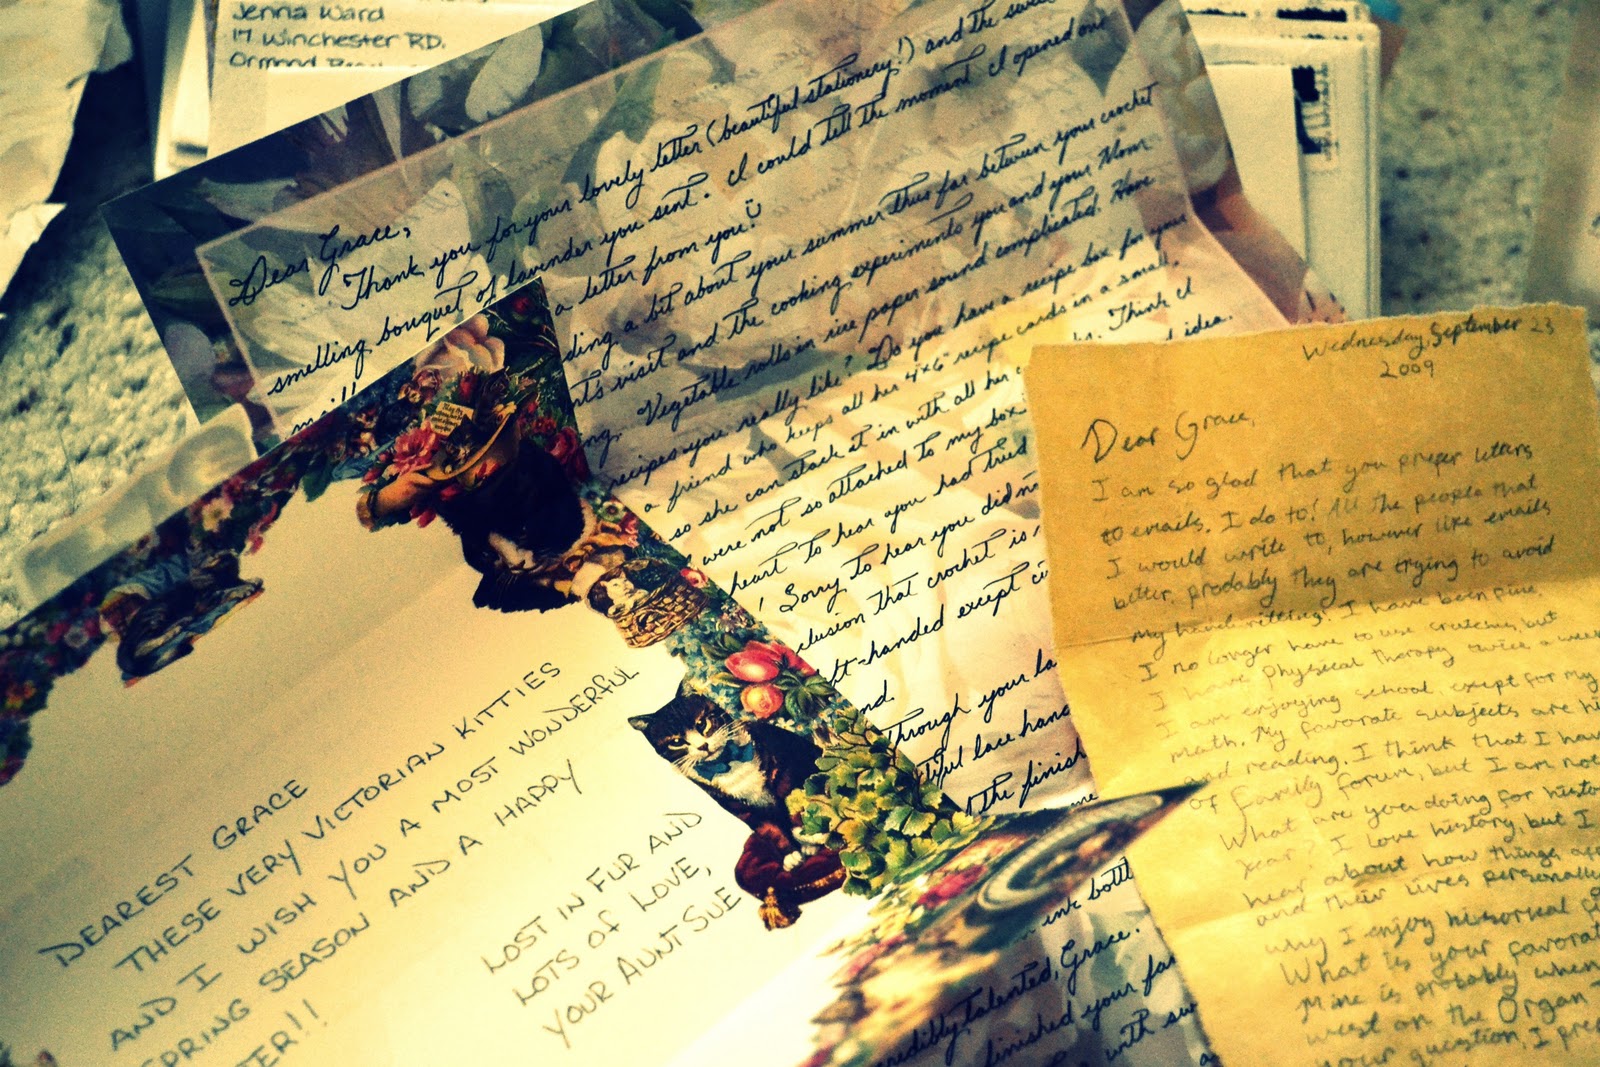 Jenna Ward
17 Winchester RD.
Ormond
Dear Grace,
Thank you for your lovely letter (beautiful stationery!) and the
smelling bouquet of lavender you sent. I could tell the moment I opened
a letter from you!
ding a bit about your summer thus far between your crochet
nt's visit and the cooking experiments you and your Mom
ng. Vegetable rolls in rice paper sound complicated. Have
recipes you really like? Do you have a recipe box for your
a friend who keeps all her 4"x6" recipe cards in a small
so she can stack it in with all her
were not so attached to my box
Think I
idea.
heart to hear you had tried
! Sorry to hear you did
clusion that crochet is
ft-handed except
nd.
Through your
tiful lace
the finish
ink bottl
credibly talented, Grace.
finished your
with
DEAREST GRACE
THESE VERY VICTORIAN KITTIES
AND I WISH YOU A MOST WONDERFUL
SPRING SEASON AND A HAPPY
TER!!
LOST IN FUR AND
LOTS OF LOVE,
YOUR AUNT SUE
Wednesday, September 23
2009
Dear Grace,
I am so glad that you prefer letters
to emails. I do to! All the people that
I would write to, however like emails
better, probably they are trying to avoid
my handwriting! I have been fine.
I no longer have to use crutches, but
I have Physical Therapy twice a week
I am enjoying school, exept for my
math. My favorate subjects are hi
and reading. I think that I have
of family forum, but I am not
What are you doing for histor
year? I love history, but I
hear about how things
and their lives personally
why I enjoy historical fi
What is your favorat
Mine is probably when
west on the Organ
your question, I pre